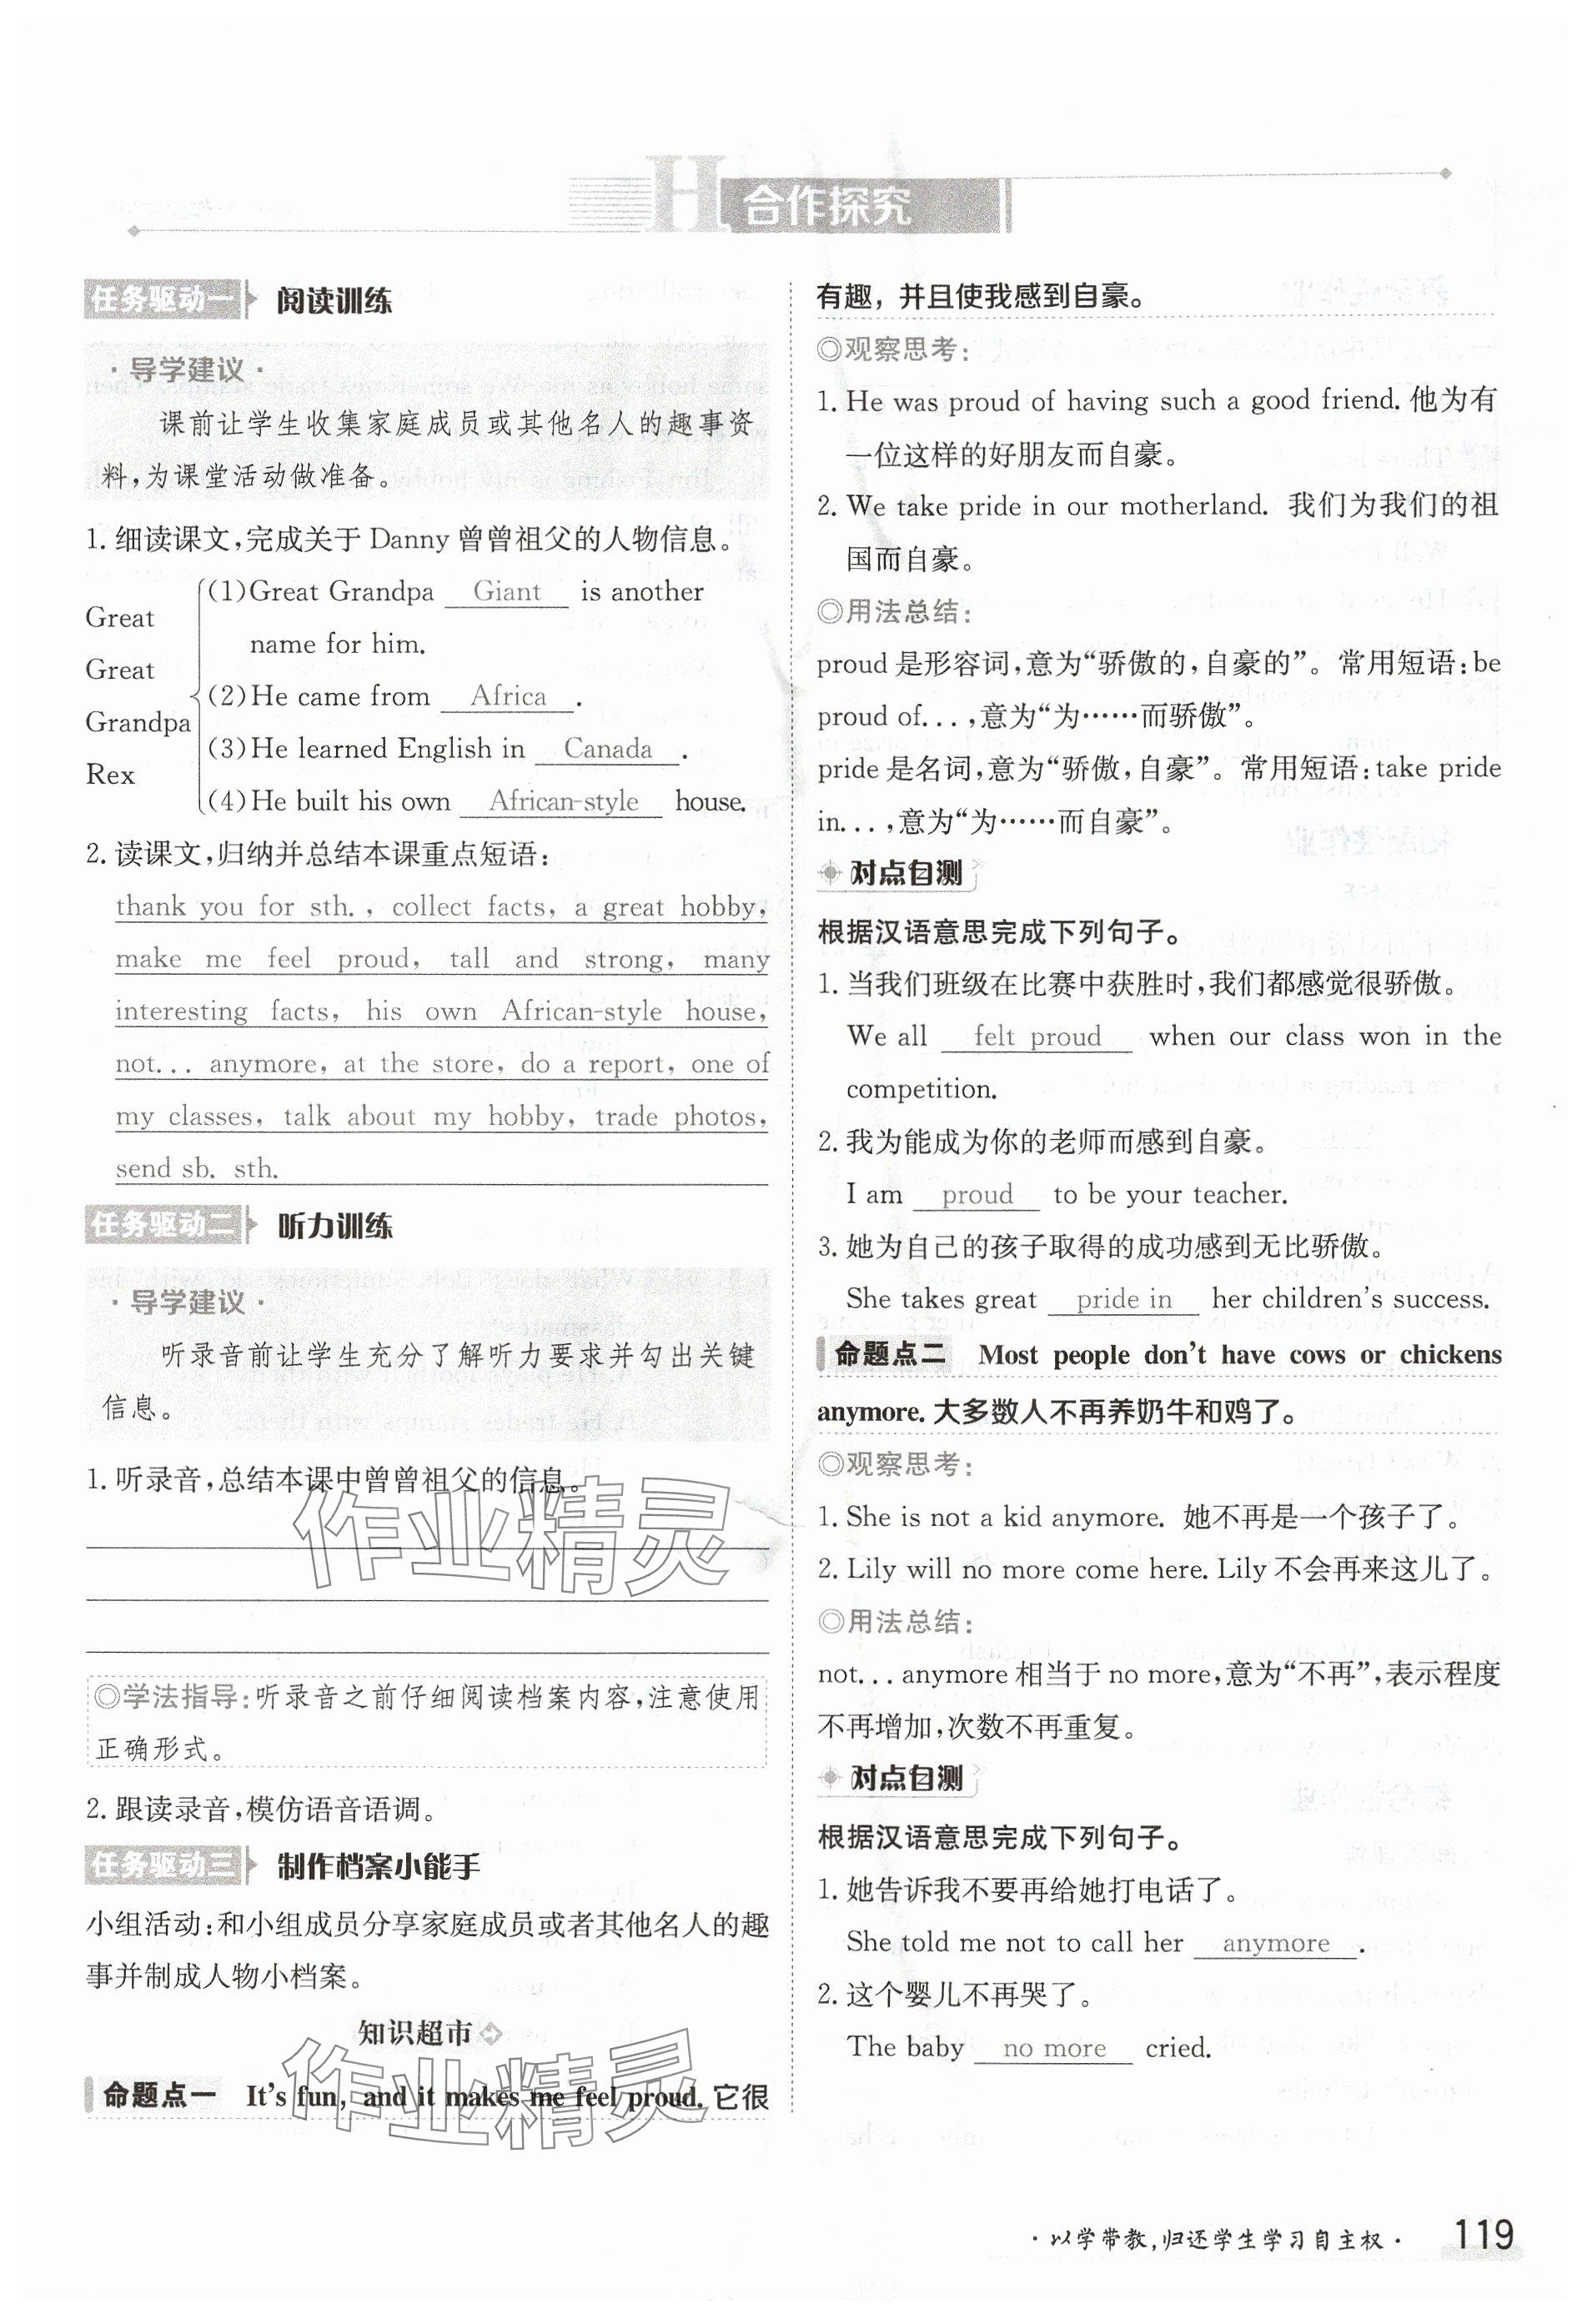 H 合作探究
任务驱动一 阅读训练
·导学建议·
课前让学生收集家庭成员或其他名人的趣事资
料,为课堂活动做准备。
1. 细读课文,完成关于 Danny 曾曾祖父的人物信息。
Great
Great
Grandpa
Rex
(1)Great Grandpa Giant is another
name for him.
(2)He came from Africa .
(3)He learned English in Canada .
(4)He built his own African-style house.
2. 读课文,归纳并总结本课重点短语:
thank you for sth. , collect facts, a great hobby,
make me feel proud, tall and strong, many
interesting facts, his own African-style house,
not... anymore, at the store, do a report, one of
my classes, talk about my hobby, trade photos,
send sb. sth.
任务驱动二 听力训练
·导学建议·
听录音前让学生充分了解听力要求并勾出关键
信息。
1. 听录音,总结本课中曾曾祖父的信息。
作业精灵
◎学法指导:听录音之前仔细阅读档案内容,注意使用
正确形式。
2. 跟读录音,模仿语音语调。
任务驱动三 制作档案小能手
小组活动:和小组成员分享家庭成员或者其他名人的趣
事并制成人物小档案。
知识超市
作业精灵
命题点一 It's fun, and it makes me feel proud. 它很
有趣，并且使我感到自豪。
◎观察思考:
1. He was proud of having such a good friend. 他为有
一位这样的好朋友而自豪。
2. We take pride in our motherland. 我们为我们的祖
国而自豪。
◎用法总结:
proud 是形容词,意为“骄傲的,自豪的”。常用短语:be
proud of...,意为“为……而骄傲”。
pride 是名词,意为“骄傲,自豪”。常用短语:take pride
in...,意为“为……而自豪”。
对点自测
根据汉语意思完成下列句子。
1. 当我们班级在比赛中获胜时,我们都感觉很骄傲。
We all felt proud when our class won in the
competition.
2. 我为能成为你的老师而感到自豪。
I am proud to be your teacher.
3. 她为自己的孩子取得的成功感到无比骄傲。
She takes great pride in her children's success.
命题点二 Most people don't have cows or chickens
anymore. 大多数人不再养奶牛和鸡了。
◎观察思考:
1. She is not a kid anymore. 她不再是一个孩子了。
2. Lily will no more come here. Lily 不会再来这儿了。
◎用法总结:
not... anymore 相当于 no more,意为“不再”,表示程度
不再增加,次数不再重复。
对点自测
根据汉语意思完成下列句子。
1. 她告诉我不要再给她打电话了。
She told me not to call her anymore .
2. 这个婴儿不再哭了。
The baby no more cried.
·以学带教,归还学生学习自主权· 119